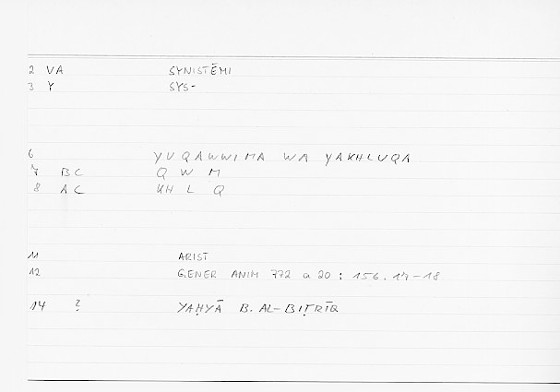 2 VA SYNISTĒMI
3 Y SYS-
6 YUQAWWIMA WA YAKHLUQA
7 BC Q W M
8 AC KH L Q
11 ARIST
12 GENER ANIM 772 a 20 : 156.17-18
14 ? YAḤYĀ B. AL-BIṬRĪQ